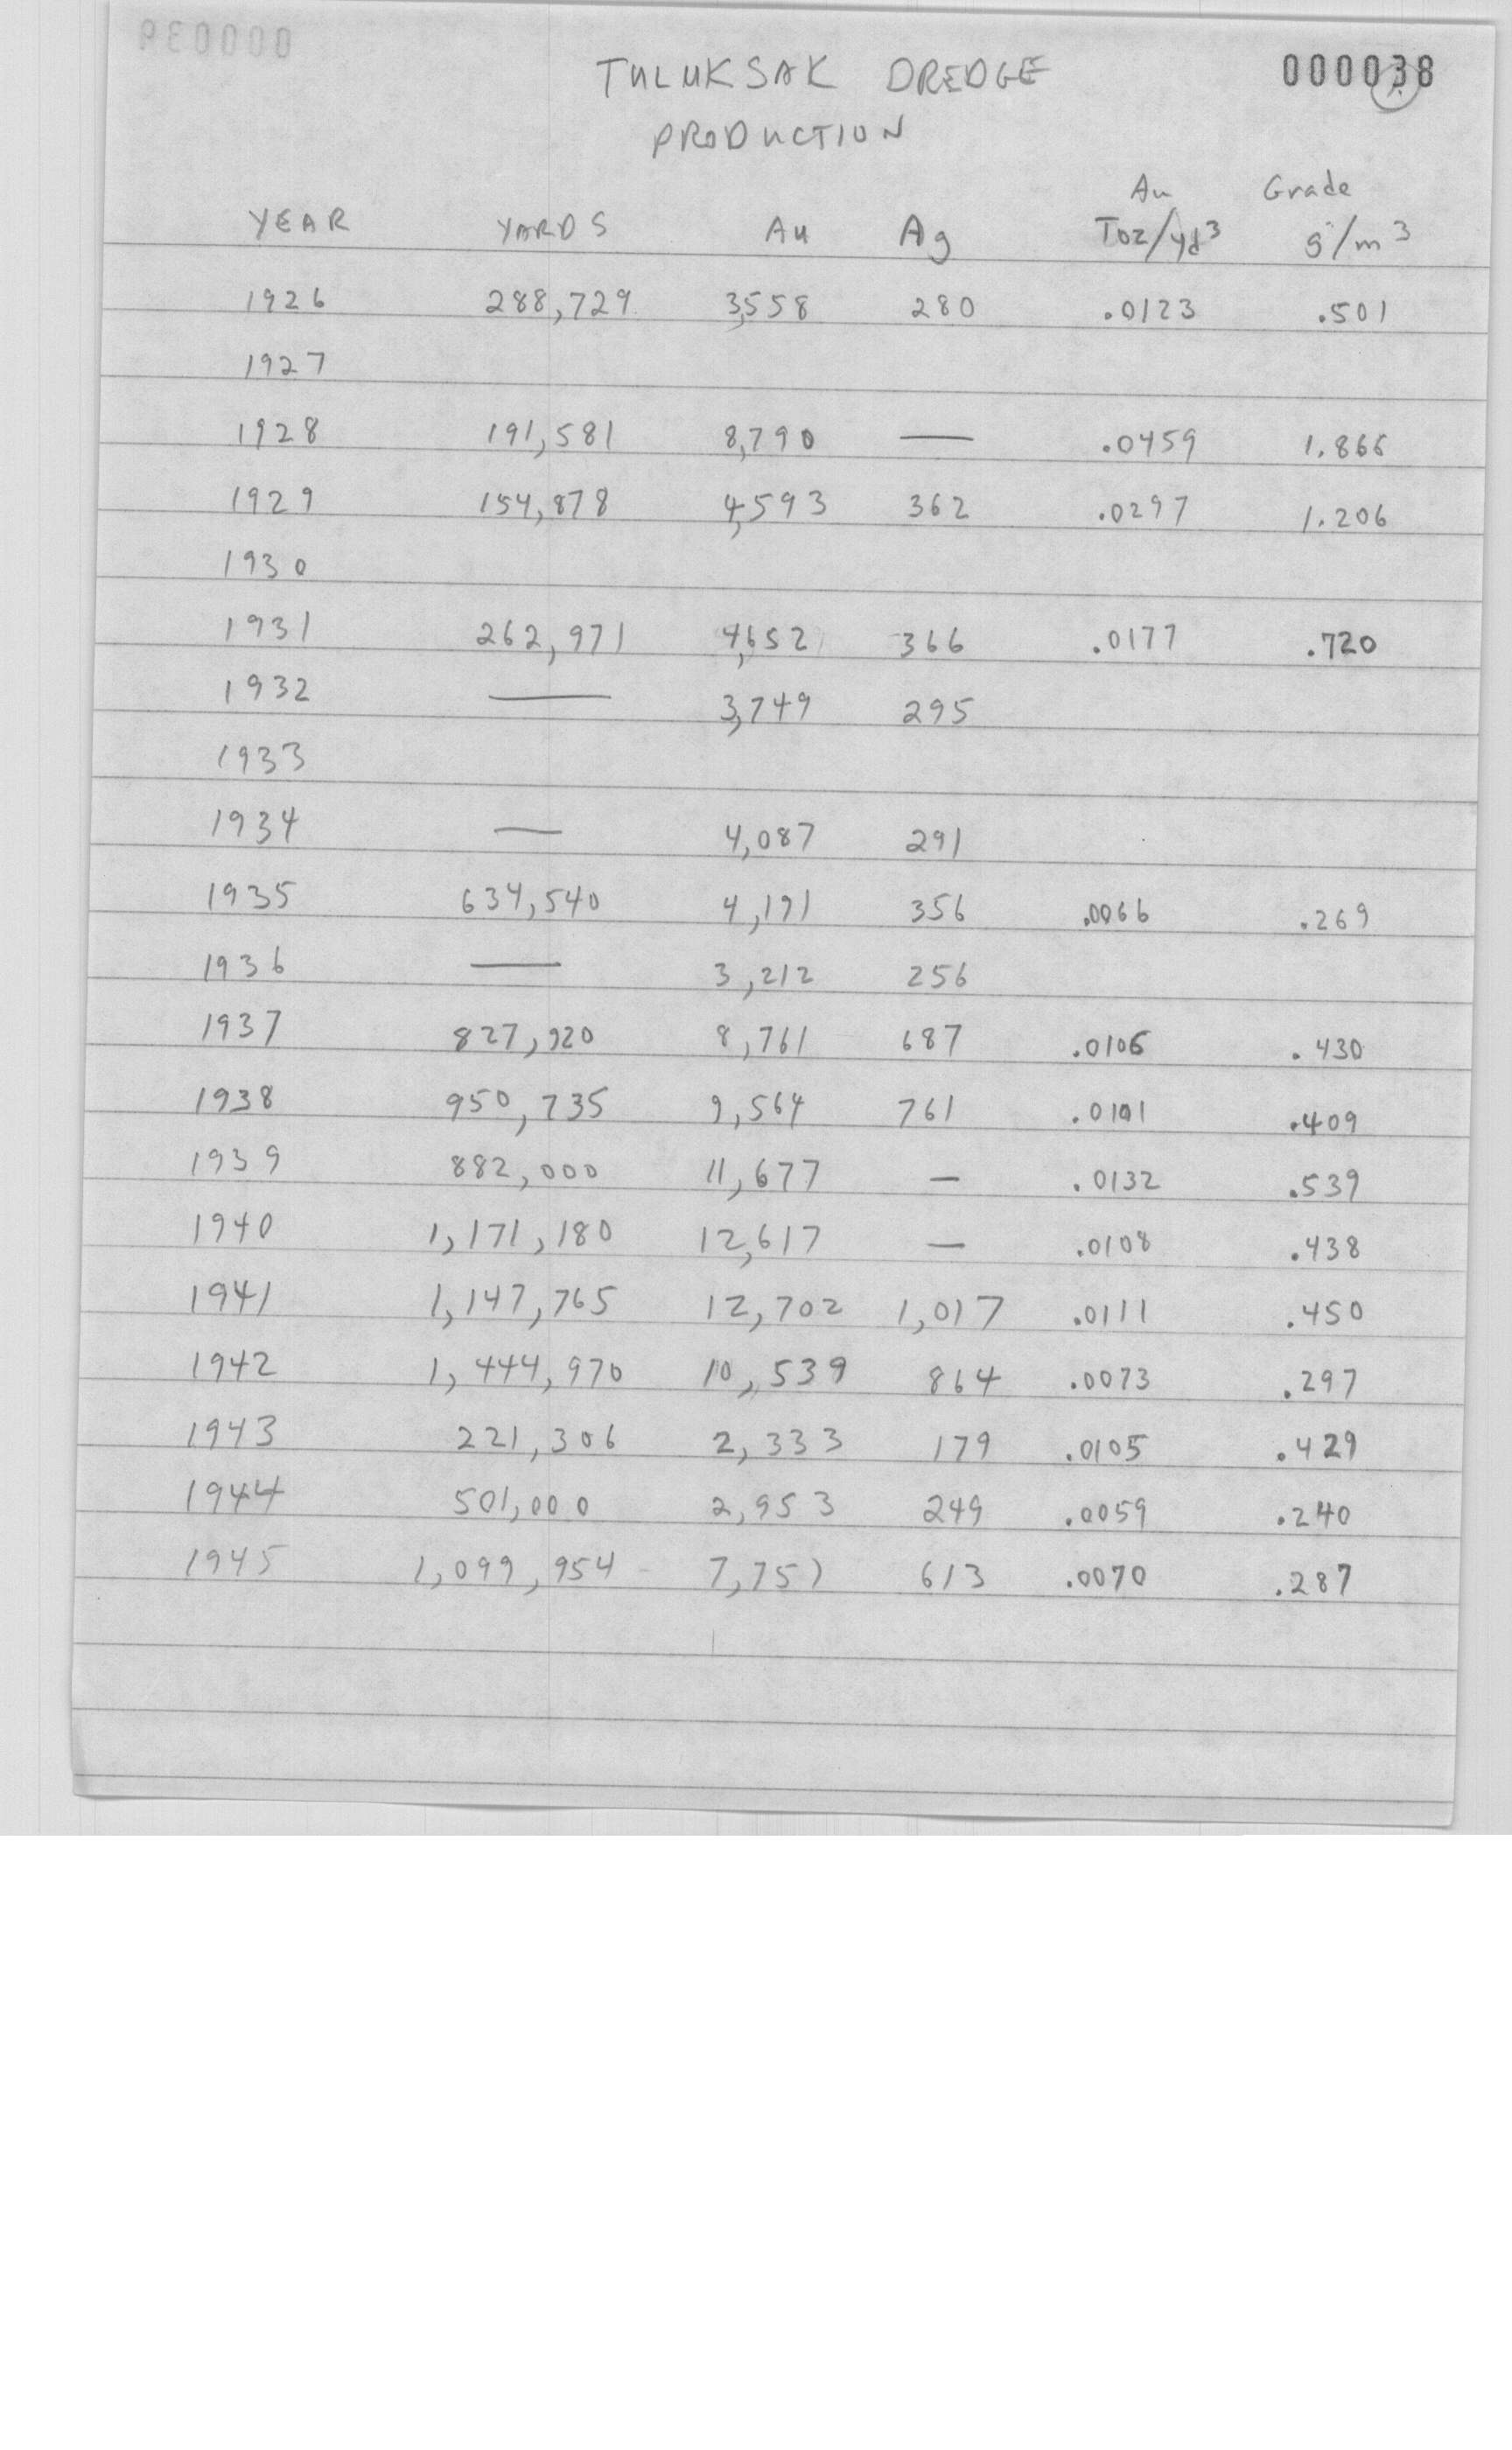 000039
TULUKSAK DREDGE 000038
PRODUCTION
Au Grade
YEAR YARDS Au Ag Toz/yd³ g/m³
1926 288,729 3,558 280 .0123 .501
1927
1928 191,581 8,790 — .0459 1.866
1929 154,878 4,593 362 .0297 1.206
1930
1931 262,971 4,652 366 .0177 .720
1932 — 3,749 295
1933
1934 — 4,087 291
1935 634,540 4,191 356 .0066 .269
1936 — 3,212 256
1937 827,920 8,761 687 .0106 .430
1938 950,735 9,564 761 .0101 .409
1939 882,000 11,677 — .0132 .539
1940 1,171,180 12,617 — .0108 .438
1941 1,147,765 12,702 1,017 .0111 .450
1942 1,444,970 10,539 864 .0073 .297
1943 221,306 2,333 179 .0105 .429
1944 501,000 2,953 249 .0059 .240
1945 1,099,954 7,751 613 .0070 .287